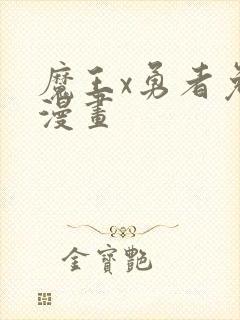 魔王x勇者免
漫畫
金寶艷